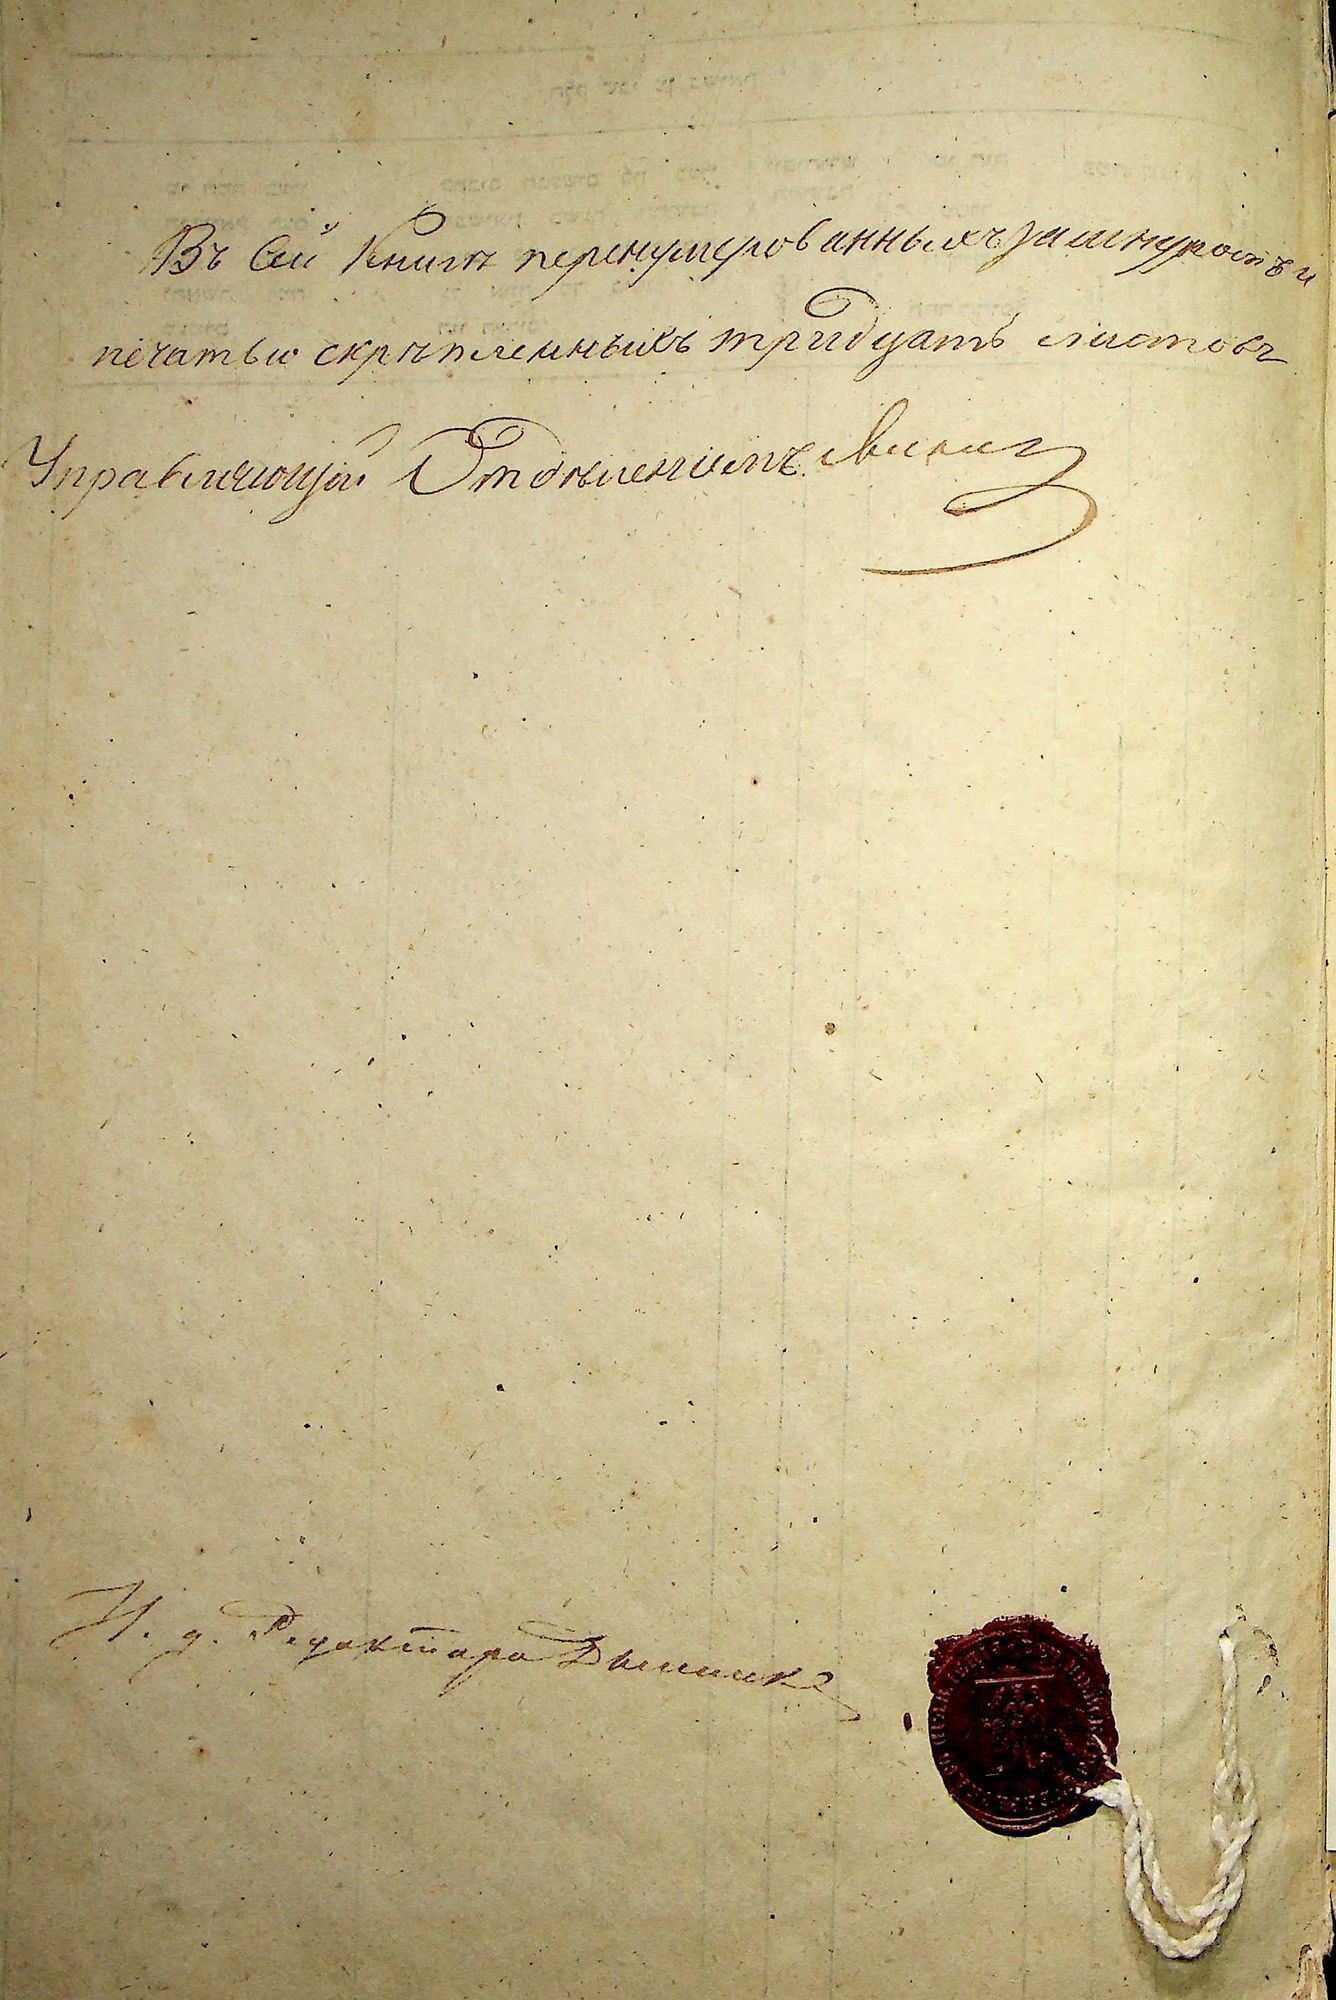 Въ сей Книгѣ перенумерованныхъ зашнуровъ и
печатью скрѣпленныхъ тридцать листовъ
Управляющій Отдѣленіемъ
И. д. Редактора